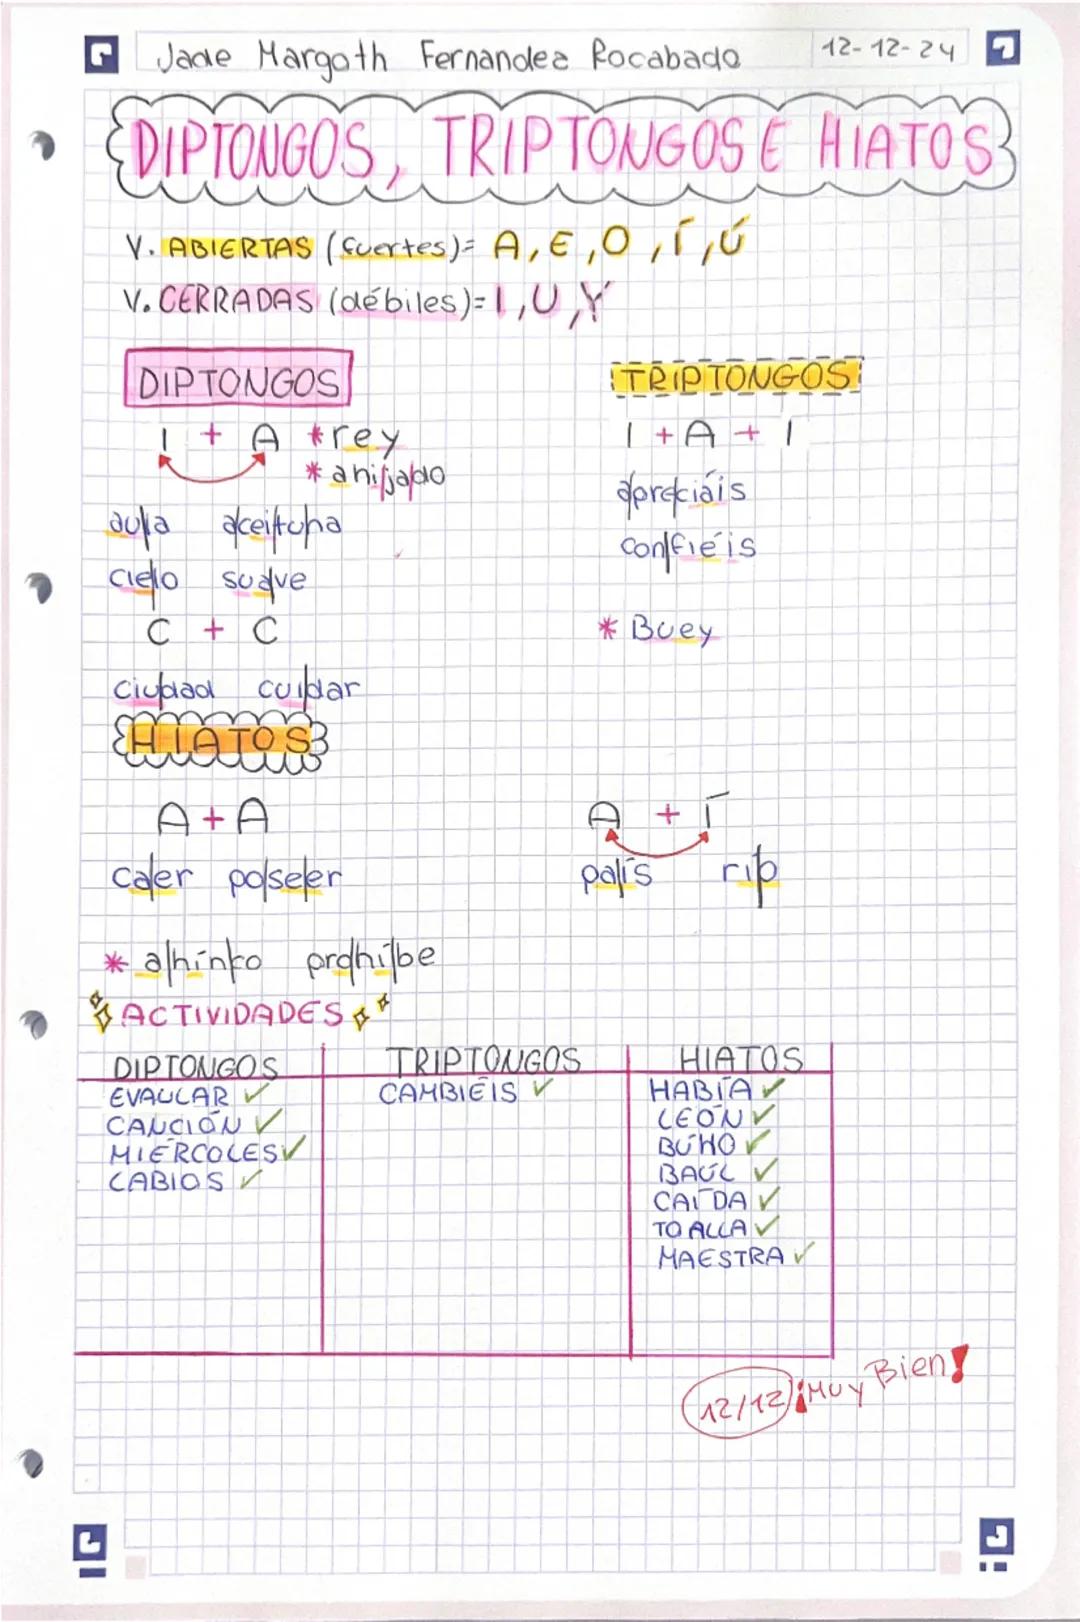 Jade Margoth Fernandez Rocabado 12-12-24
DIPTONGOS, TRIPTONGOS E HIATOS
V. ABIERTAS (fuertes)= A, E, O, Í, Ú
V. CERRADAS (débiles)= I, U, Y
DIPTONGOS
I + A *rey
* ahi/ja/do
au/la a/cei/tuna
cie/lo sua/ve
C + C
ciu/dad cui/dar
TRIPTONGOS
I + A + I
a/pre/ciáis
con/fiéis
* Buey
HIATOS
A + A
ca/er po/se/er
A + Í
pa/ís rí/o
* a/hín/co pro/hí/be
ACTIVIDADES
DIPTONGOS TRIPTONGOS HIATOS
EVAULAR ✓ CAMBIÉIS ✓ HABÍA ✓
CANCIÓN ✓ LEÓN ✓
MIÉRCOLES ✓ BÚHO ✓
CABIOS ✓ BAÚL ✓
CAÍDA ✓
TOALLA ✓
MAESTRA ✓
12/12 ¡Muy Bien!